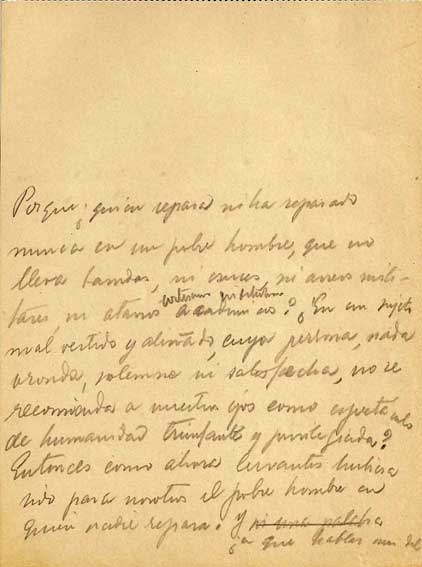 Porque ¿quien repara ni ha reparado
nunca en un pobre hombre, que no
lleva bandas, ni cruces, ni arreos mili-
cortesanos
tares, ni atavios academicos? ¿En un sujeto
mal vestido y aliñado, cuya persona, nada
oronda, solemne ni satisfecha, no se
recomienda a nuestros ojos como espectaculo
de humanidad triunfante y privilegiada?
Entonces como ahora Cervantes hubiera
sido para nosotros el pobre hombre en
quien nadie repara. Y ni una palabra
¿a que hablar mas del